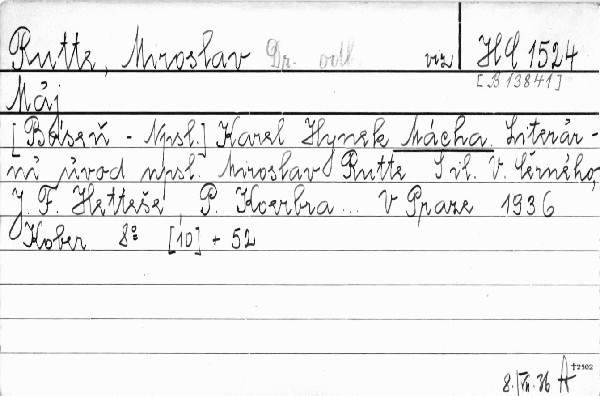 Rutte, Miroslav Dr. viz HC 1524
[B 13841]
Máj
[Báseň - Npsl.] Karel Hynek Mácha. Literár-
ní úvod npsl. Miroslav Rutte S il. V. Černého,
J. F. Hetteše, P. Koerbra... V Praze 1936
Kober 8° [10] + 52
8./VII.36 A †2502